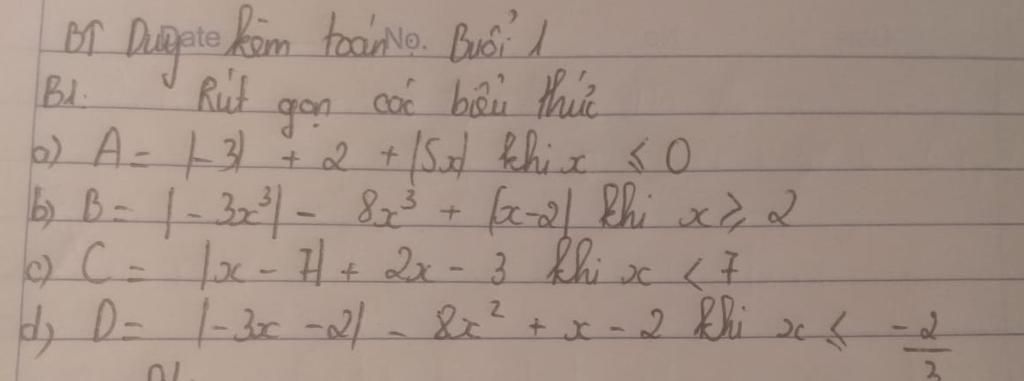 BT Dạy kèm toán No. Buổi 1
B1. Rút gọn các biểu thức
a) A = |-3| + 2 + |5x| khi x ≤ 0
b) B = |-3x³| - 8x³ + |x-2| khi x ≥ 2
c) C = |x - 7| + 2x - 3 khi x < 7
d) D = |-3x - 2| - 8x² + x - 2 khi x ≤ -2/3